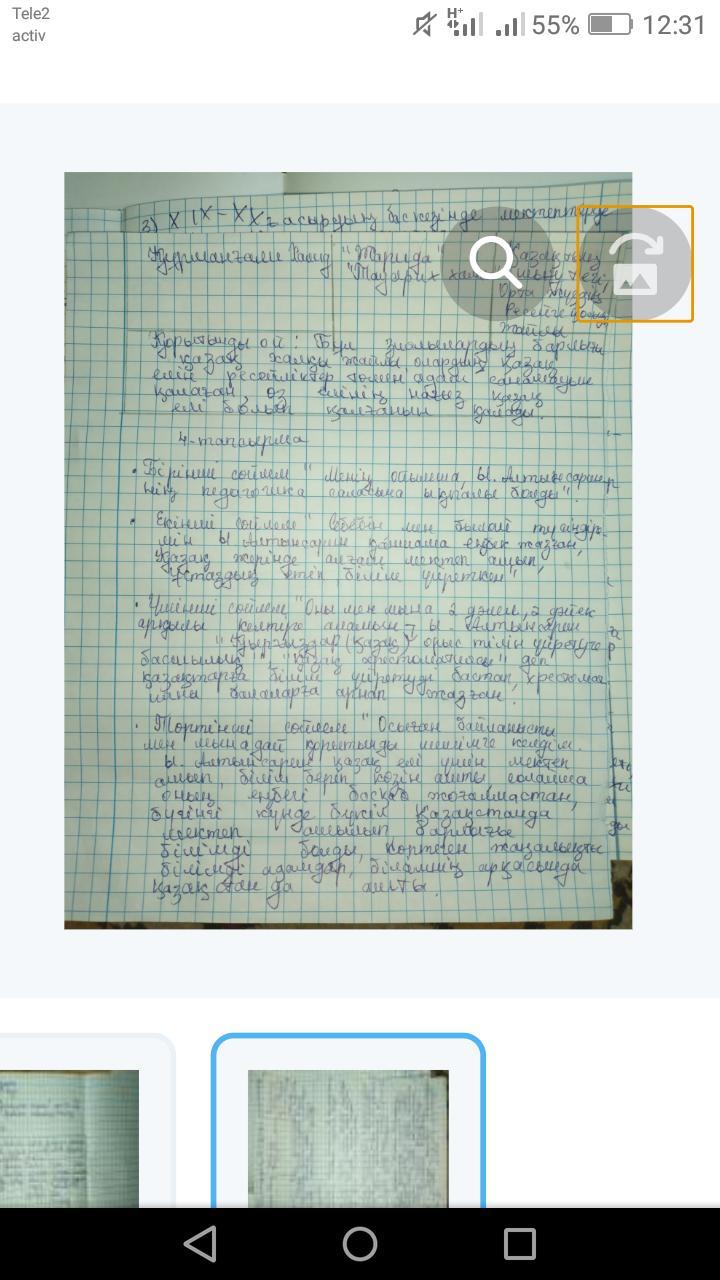 Tele2
activ
H+
55%
12:31
3) XIX-XX ғасырдың бас кезінде мектептерде
Құрманғали Халид "Тарида" Қазақтың
"Тауарих хам шығу тегі,
Орта жүздің
Ресейге
жайлы
Қорытынды ой: Бұл зиялылардың барлығы
қазақ халқы жайлы, олардың қазақ
елін ресейліктер төмен адам санамауын
қалаған, өз елінің нағыз қазақ
елі болып қалғанын қалады.
4-тапсырма
• Бірінші сөйлем "Менің ойымша, Ы. Алтынсарин
нің педагогика саласына ықпалы болды".
• Екінші сөйлем "Себебін мен былай түсіндір-
мін Ы Алтынсарин қаншама еңбек жазған,
Қазақ жерінде алғаш мектеп ашып,
Ұстаздық етіп білім үйреткен"
• Үшінші сөйлем "Оны мен мына 2 дәлел, 2 дәйек
арқылы келтіре аламын - Ы. Алтынсарин
"Қырғыздар (қазақ) орыс тілін үйретуге
басшылық" "Қазақ хрестоматиясы" деп
қазақтарға білім үйретуді бастап, хрестома
балаларға арнап жазған.
• Төртінші сөйлем "Осыған байланысты
мен мынадай қорытынды шешімге келдім.
Ы. Алтынсарин қазақ елі үшін мектеп
ашып, білім беріп көзін ашты солайша
оның еңбегі босқа жоғалмастан,
бүгінгі күнде бүкіл Қазақстанда
мектеп ашылып барлығы
білімді болды, көптеген жаңалықты
білімді адамдар, білімнің арқасында
Қазақстан да ашты.